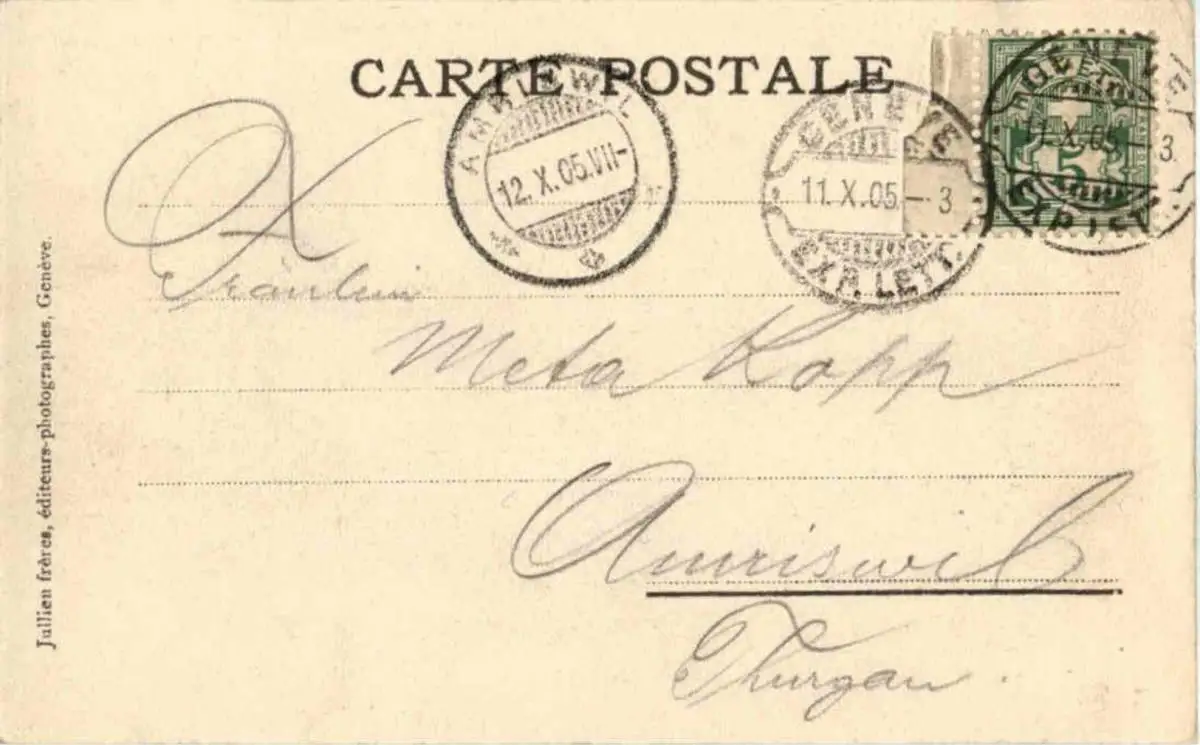 CARTE POSTALE
AMRISWIL
12.X.05.VII-
GENEVE
11.X.05.— 3
EXP. LETT.
GENEVE
11.X.05.— 3
EXP. LETT.
5
Fräulein
Meta Kopp
Amriswil
Thurgau.
Jullien frères, éditeurs-photographes, Genève.